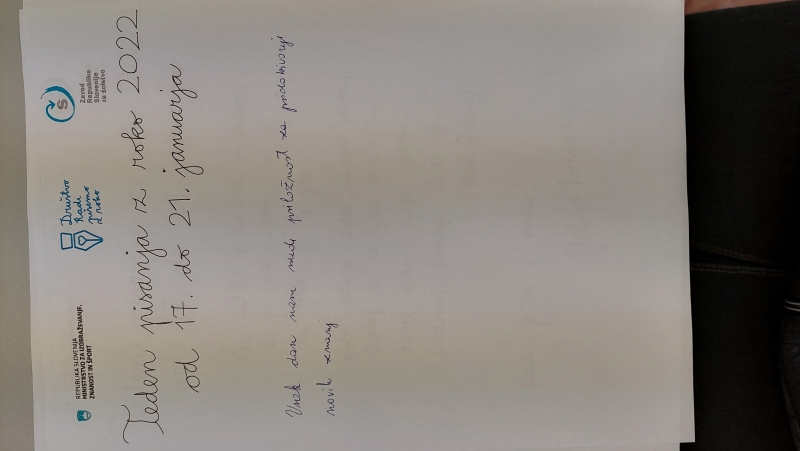 REPUBLIKA SLOVENIJA
MINISTRSTVO ZA IZOBRAŽEVANJE,
ZNANOST IN ŠPORT
Društvo
Radi
pišemo
z roko
Zavod
Republike
Slovenije
za šolstvo
Teden pisanja z roko 2022
od 17. do 21. januarja
Vsak dan nam nudi priložnost za pridobivanji
novih znanj.